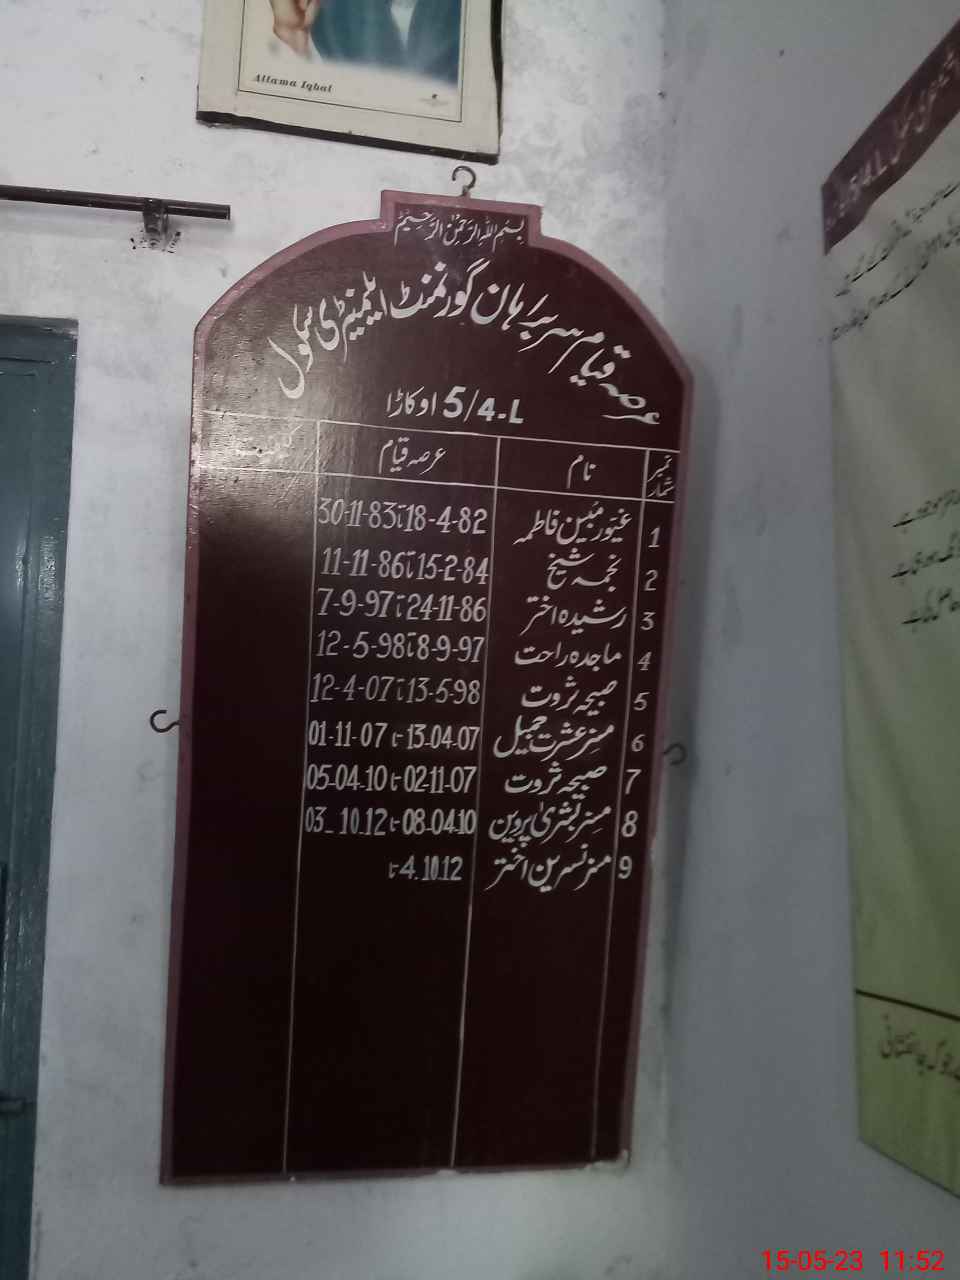 Allama Iqbal
بسم اللہ الرحمن الرحیم
عرصہ قیام سربراہان گورنمنٹ ایلیمنٹری سکول
5/4-L اوکاڑا
نمبر شمار نام عرصہ قیام
1 غیور مبین فاطمہ 18-4-82 تا 30-11-83
2 نجمہ شیخ 15-2-84 تا 11-11-86
3 رشیدہ اختر 24-11-86 تا 7-9-97
4 ماجدہ راحت 8-9-97 تا 12-5-98
5 صبیحہ ثروت 13-5-98 تا 12-4-07
6 مسز عشرت جمیل 13-04-07 تا 01-11-07
7 صبیحہ ثروت 02-11-07 تا 05-04-10
8 مسز بشریٰ پروین 08-04-10 تا 03-10-12
9 مسز نسرین اختر 4.10.12 تا
15-05-23 11:52